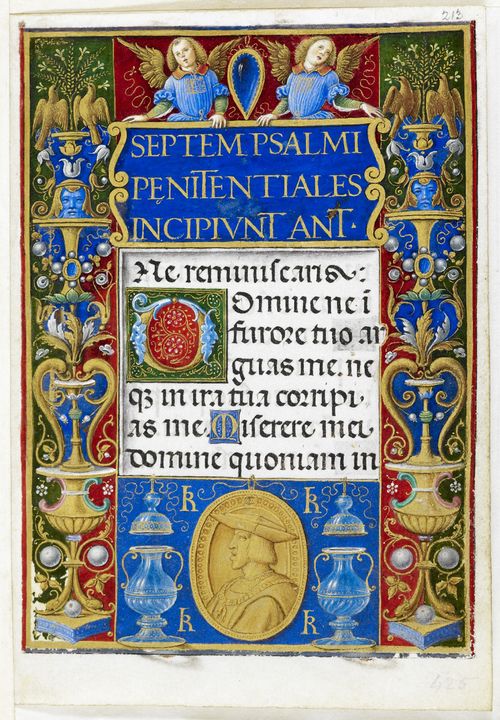 213
SEPTEM PSALMI
PĘNITENTIALES
INCIPIVNT ANT·
Ne reminiscaris :
Domine ne i
furore tuo ar
guas me. ne
qꝫ in ira tua corripi-
as me. Miserere mei
domine quoniam in